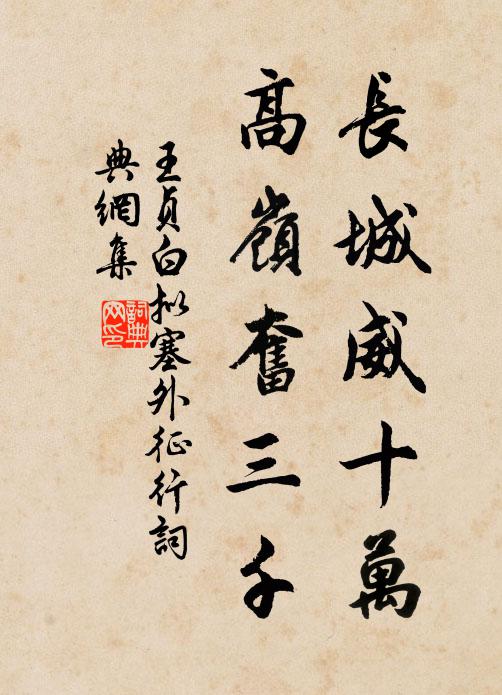 長城威十萬
高嶺奮三千
王貞白擬塞外征行詞
典網集
詞典网印